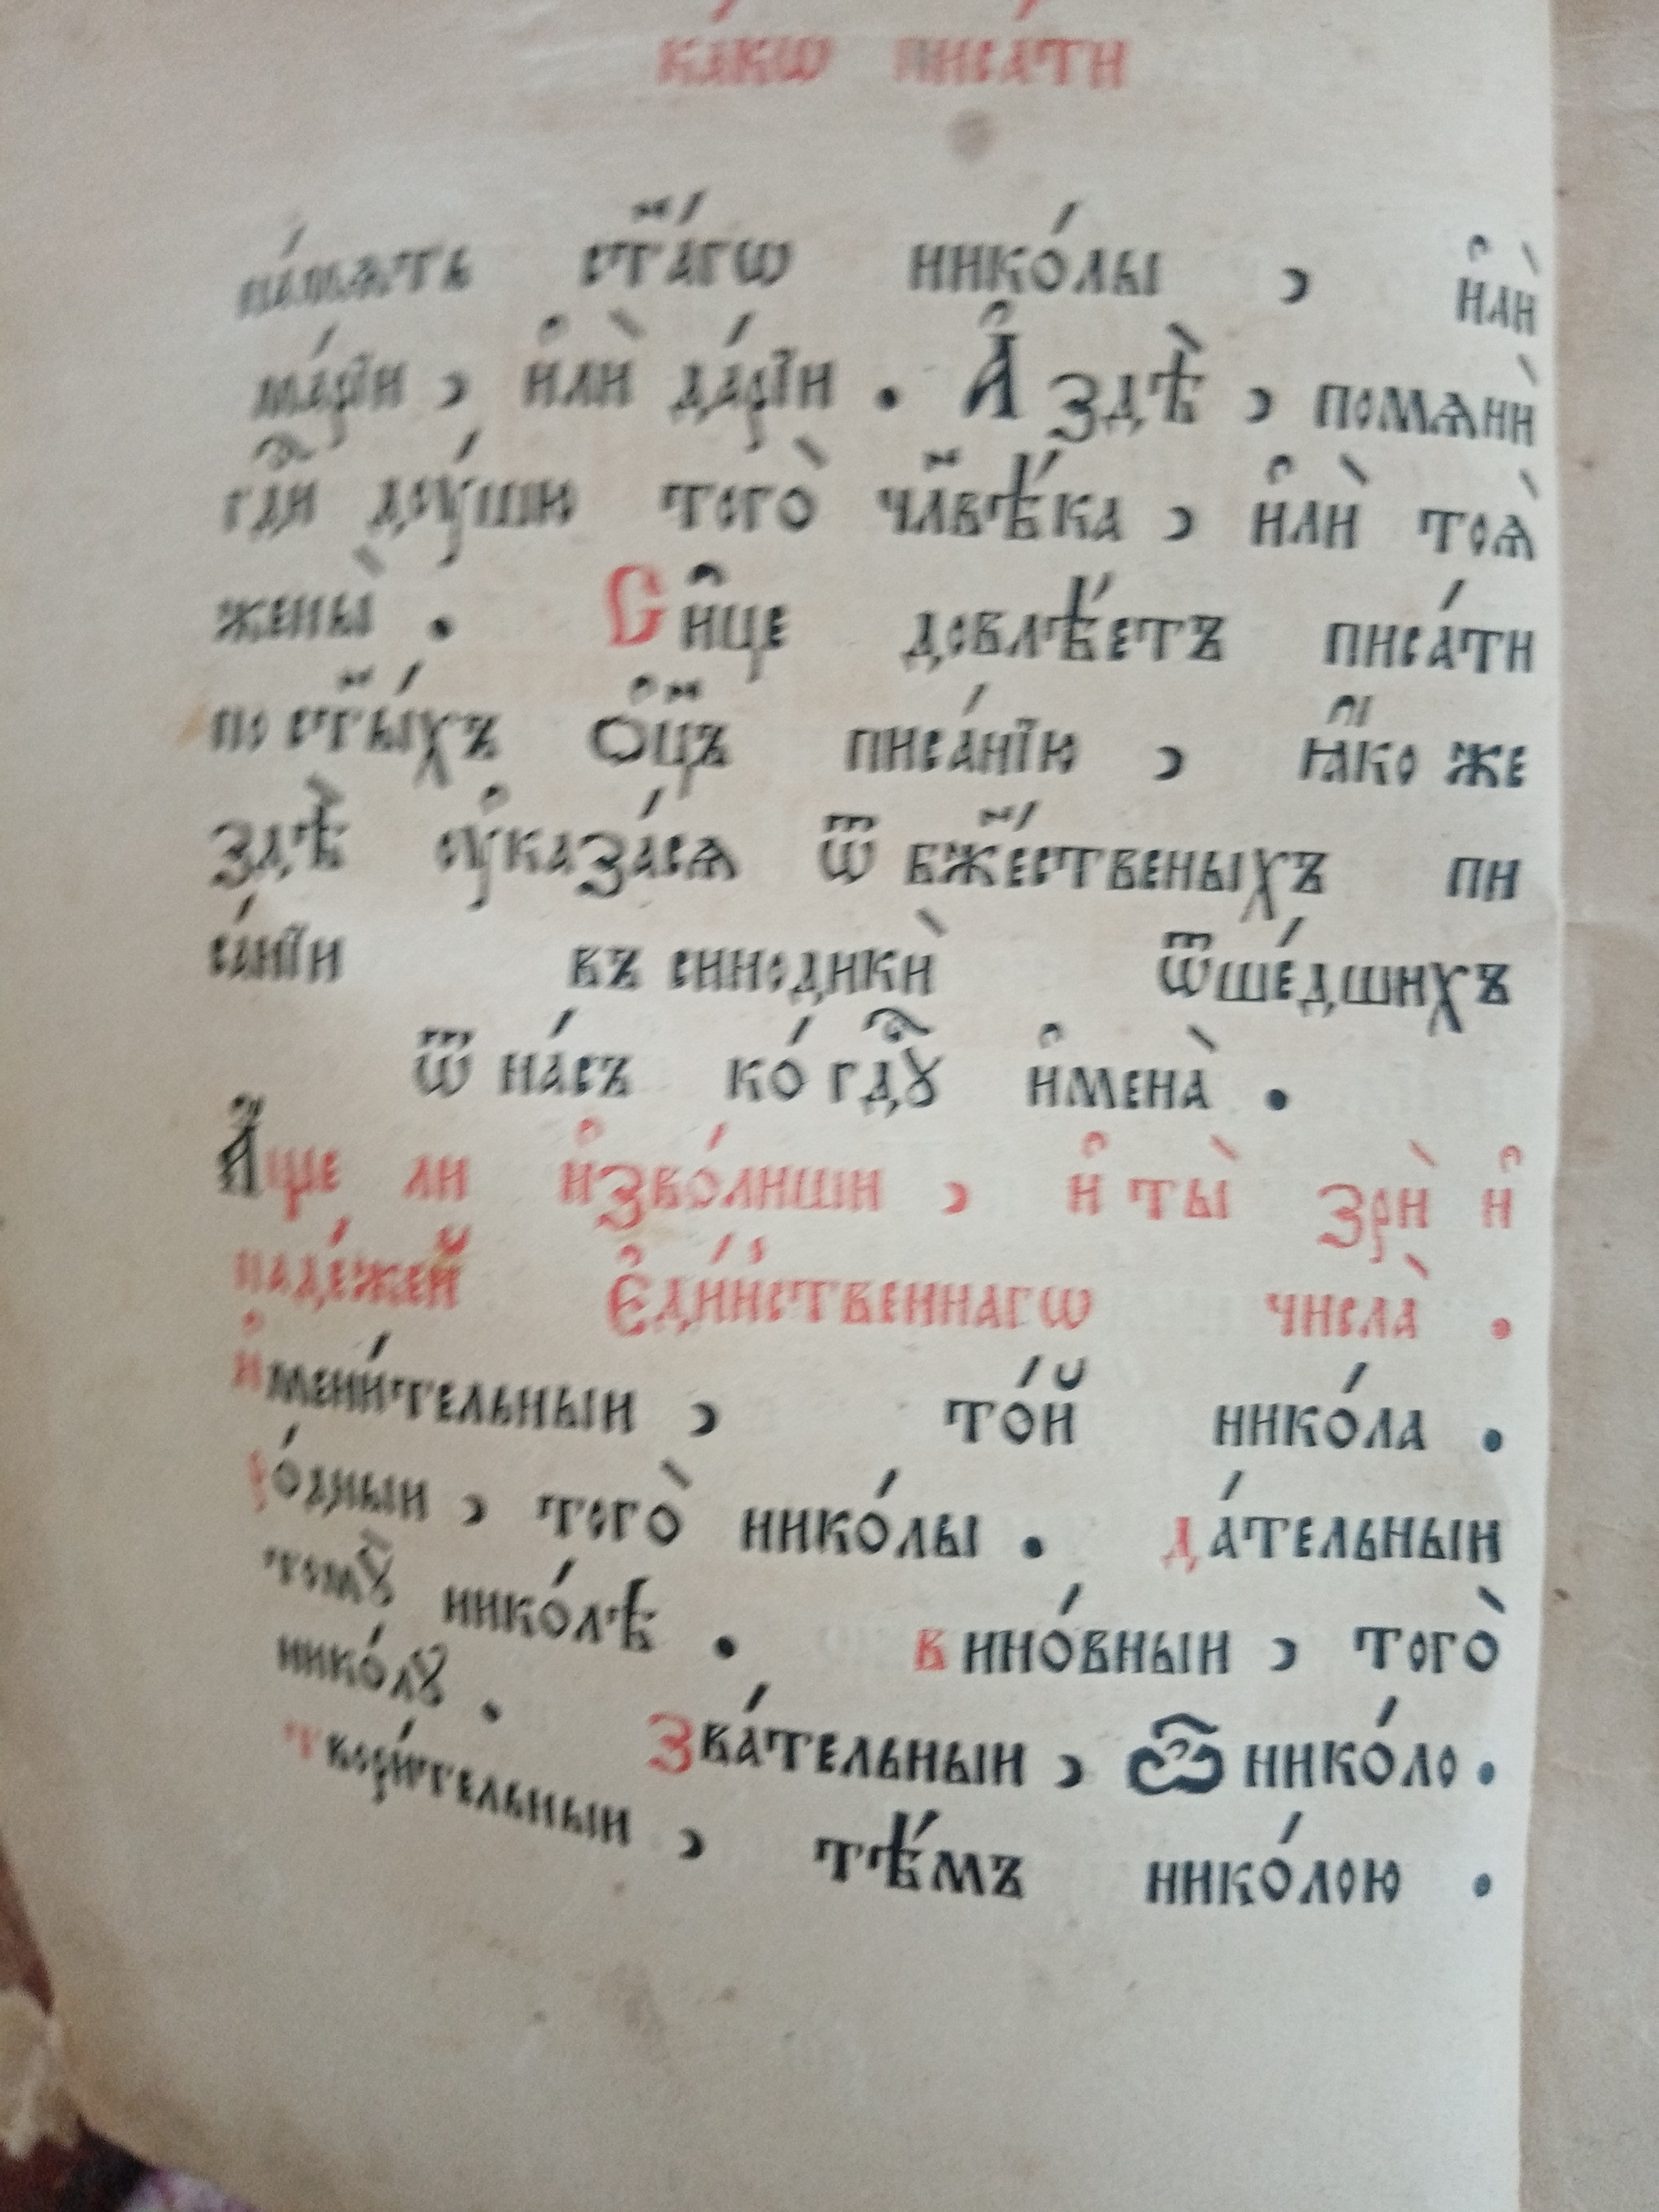 ка́кѡ писа́ти
па́мѧть ст҃а́гѡ нико́лы , и҆лѝ
мар́їи , и҆лѝ да́рїи . А҆ здѣ̀ , помѧнѝ
гдⷭ҇и доу́шю тогѡ̀ чл҃вѣ́ка , и҆лѝ тоѧ̀
жены̀ . Си҆це довлѣ́етъ писа́ти
по ст҃ы́хъ о҆ц҃ъ писа́нїю , ꙗ҆́ко же
здѣ̀ оу҆каза́сѧ ѿ бж҃е́ственыхъ пи
са́нїи въ синодикѝ ѿше́дшихъ
ѿ на́съ ко́ гдⷭ҇ꙋ и҆менà .
А҆́ще ли и҆зво́лиши , и҆ ты̀ зрѝ и҆
паде́жей є҆ди́нственнагѡ числа̀ .
и҆мени́тельныи , то́й нико́ла .
ро́дныи , того̀ нико́лы . да́тельныи
томꙋ̀ нико́лѣ . вино́вныи , того̀
нико́лꙋ . Зва́тельныи , ѽ нико́ло .
твори́тельныи , тѣ́мъ нико́лою .